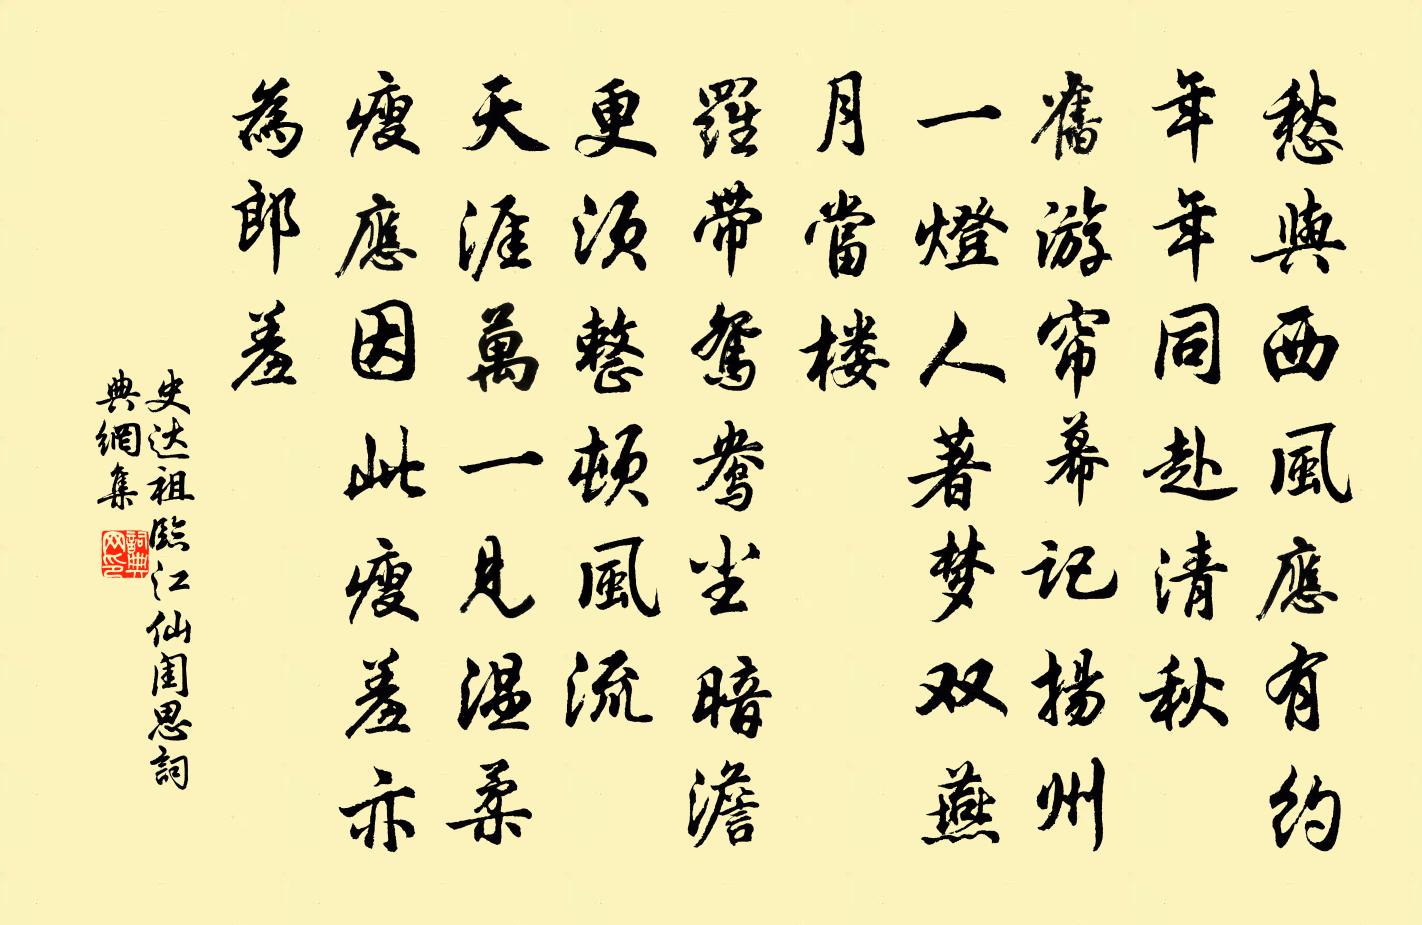 愁與西風應有约
年年同赴清秋
舊游帘幕記揚州
一燈人著梦双燕
月當楼
羅带鴛鴦尘暗澹
更須整頓風流
天涯萬一見温柔
瘦應因此瘦羞亦
為郎羞
史达祖臨江仙闺思詞
典網集
詞典网印